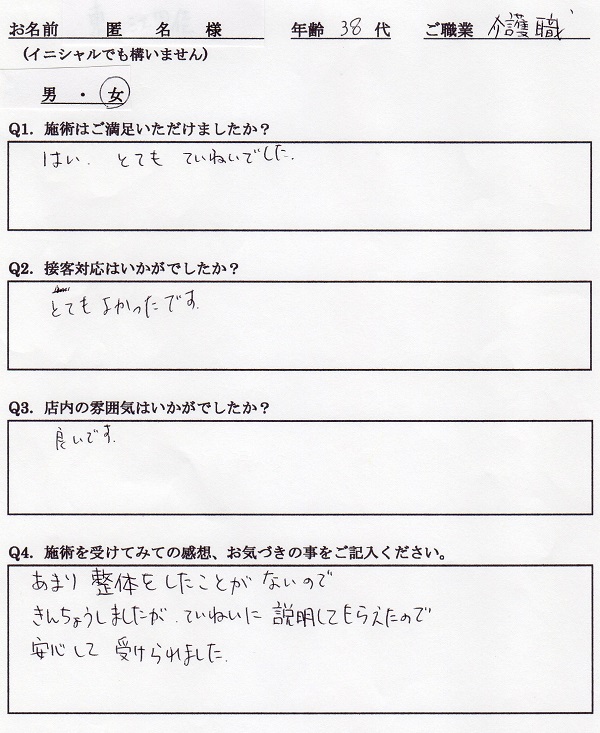 お名前 匿 名 様 年齢 38 代 ご職業 介護職
(イニシャルでも構いません)
男 ・ 女
Q1. 施術はご満足いただけましたか？
はい. とても ていねいでした.
Q2. 接客対応はいかがでしたか？
とても よかったです.
Q3. 店内の雰囲気はいかがでしたか？
良いです.
Q4. 施術を受けてみての感想、お気づきの事をご記入ください。
あまり 整体をしたことが ないので
きんちょうしましたが、ていねいに 説明してもらえたので
安心して 受けられました.